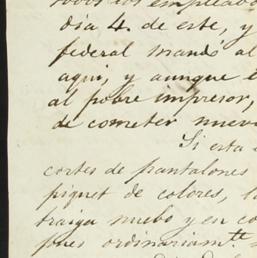 todos los emplead
día 4. de este, y
federal mandó al
aqui, y aunque
al pobre impresor,
de cometer nuev
Si esta
cortes de pantalones
piquet de colores,
traiga nuebo y en co
pues ordinariam.te